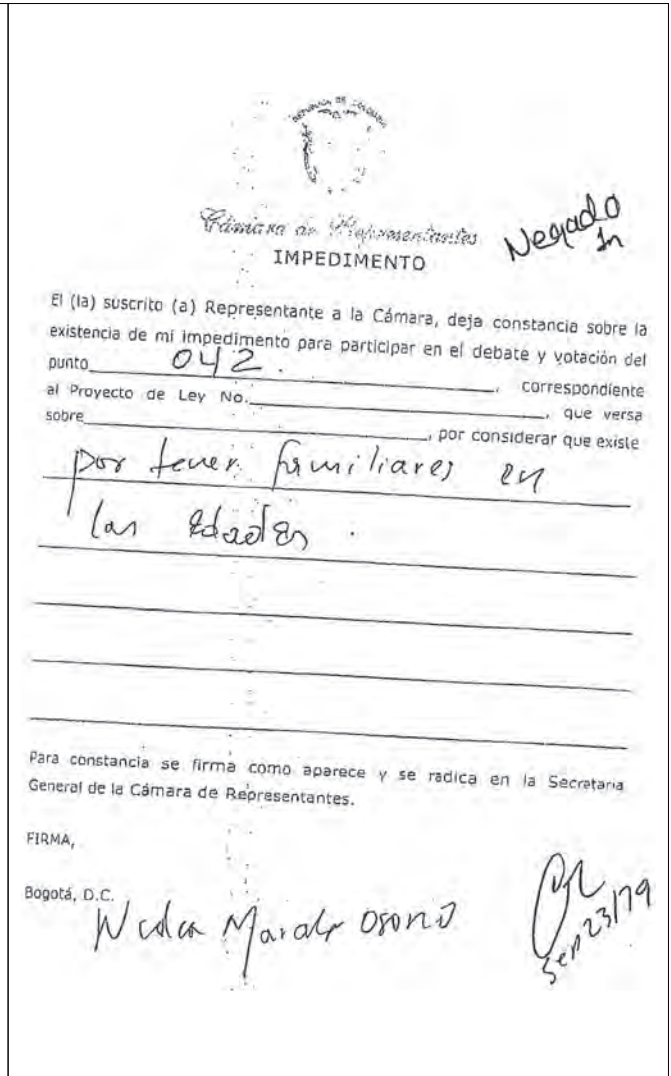 REPUBLICA DE COLOMBIA
Cámara de Representantes
Negado
IMPEDIMENTO
El (la) suscrito (a) Representante a la Cámara, deja constancia sobre la
existencia de mi impedimento para participar en el debate y votación del
punto 042. , correspondiente
al Proyecto de Ley No. , que versa
sobre , por considerar que existe
por tener familiares en
las edades.
Para constancia se firma como aparece y se radica en la Secretaria
General de la Cámara de Representantes.
FIRMA,
Bogotá, D.C.
Sep 23/19